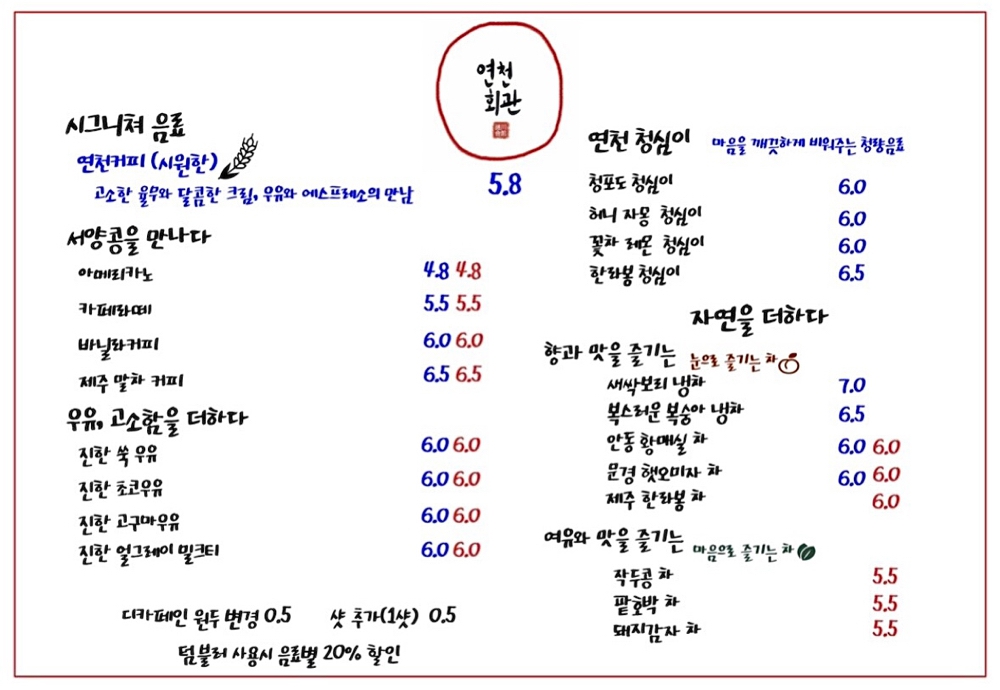 연천
회관
시그니쳐 음료
연천커피 (시원한) 5.8
고소한 율무와 달콤한 크림, 우유와 에스프레소의 만남
서양콩을 만나다
아메리카노 4.8 4.8
카페라떼 5.5 5.5
바닐라커피 6.0 6.0
제주 말차 커피 6.5 6.5
우유, 고소함을 더하다
진한 쑥 우유 6.0 6.0
진한 초코우유 6.0 6.0
진한 고구마우유 6.0 6.0
진한 얼그레이 밀크티 6.0 6.0
디카페인 원두 변경 0.5 샷 추가(1샷) 0.5
텀블러 사용시 음료별 20% 할인
연천 청심이 마음을 깨끗하게 비워주는 청량음료
청포도 청심이 6.0
허니 자몽 청심이 6.0
꽃차 레몬 청심이 6.0
한라봉 청심이 6.5
자연을 더하다
향과 맛을 즐기는 눈으로 즐기는 차
새싹보리 냉차 7.0
복스러운 복숭아 냉차 6.5
안동 황매실 차 6.0 6.0
문경 햇오미자 차 6.0 6.0
제주 한라봉 차 6.0
여유와 맛을 즐기는 마음으로 즐기는 차
작두콩 차 5.5
팥호박 차 5.5
돼지감자 차 5.5